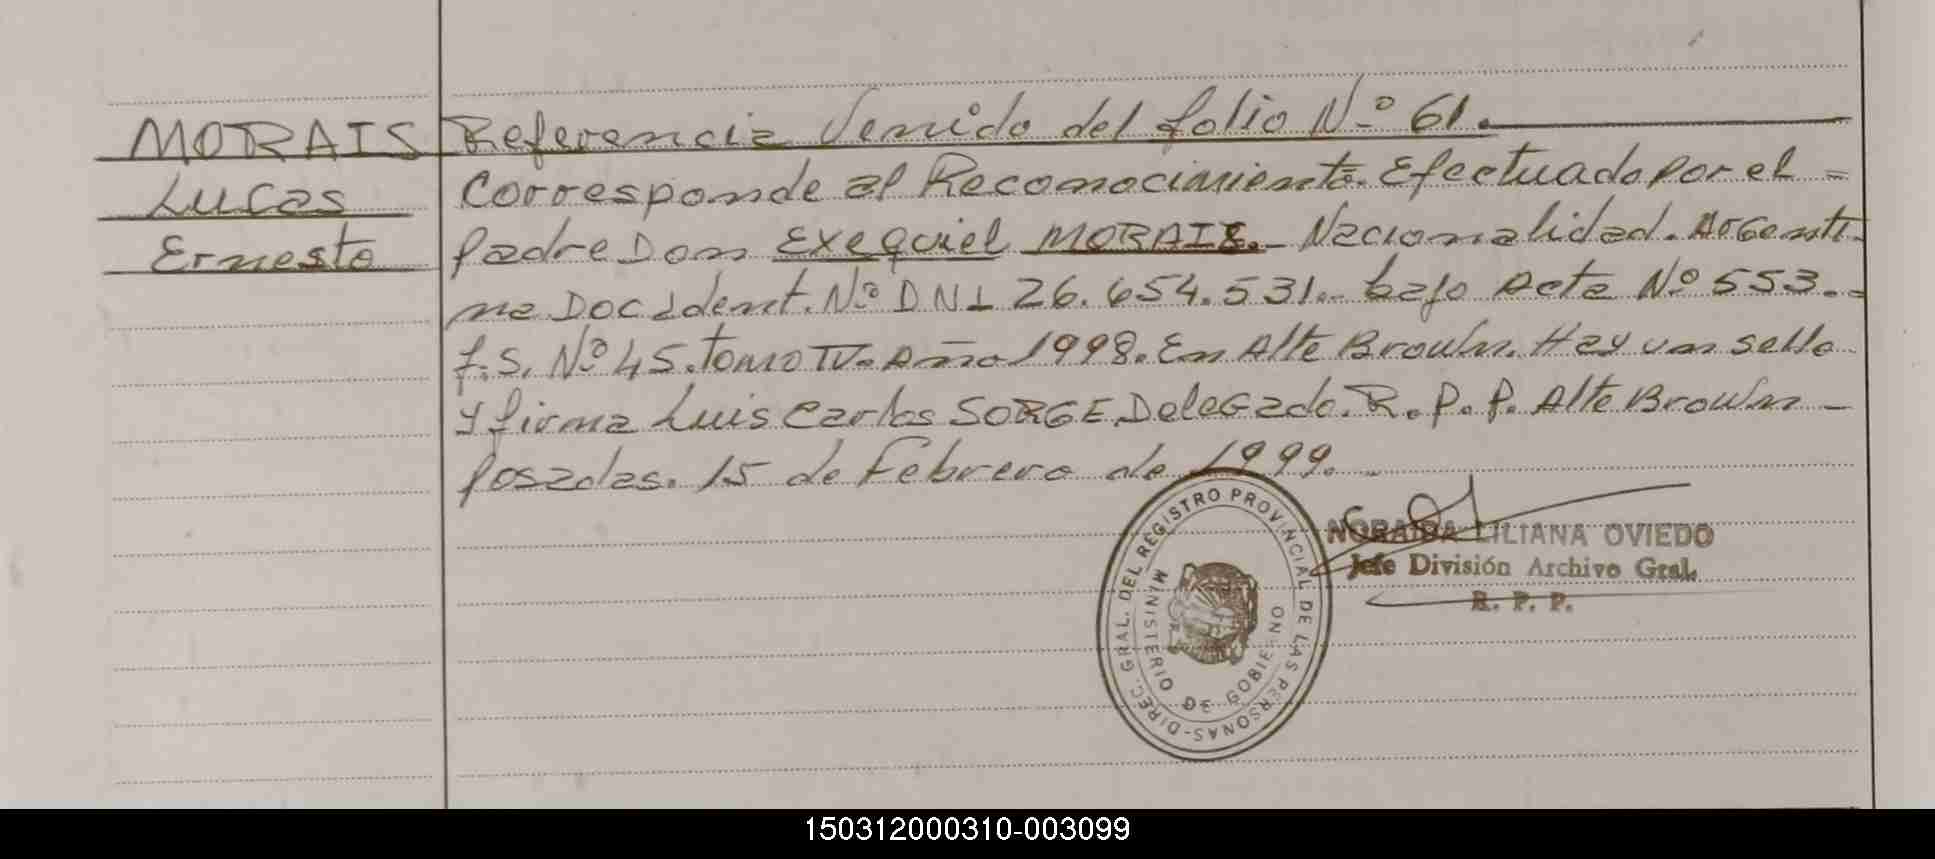 MORAIS
Lucas
Ernesto
Referencia Venido del folio Nº 61.
Corresponde al Reconocimiento. Efectuado por el =
padre Don Exequiel MORAIS. Nacionalidad. Argenti-
na Doc Ident. Nº DNI 26.654.531.- bajo Acta Nº 553.-
f.S. Nº 45. tomo IV. Año 1998. En Alte Brouwn. Hay un sello
y firma Luis Carlos SORGE Delegado. R.P.P. Alte Brouwn -
Posadas. 15 de Febrero de 1999.
DIREC. GRAL. DEL REGISTRO PROVINCIAL DE LAS PERSONAS-
MINISTERIO DE GOBIERNO
NORAIDA LILIANA OVIEDO
Jefe División Archivo Gral.
R. P. P.
150312000310-003099